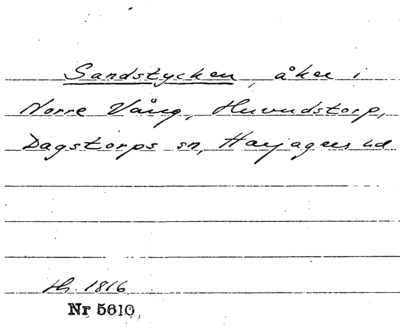 Sandstycken, åker i
Norre Vång, Huvudstorp,
Dagstorps sn, Harjagers hd
Hs. 1816
Nr 5610,